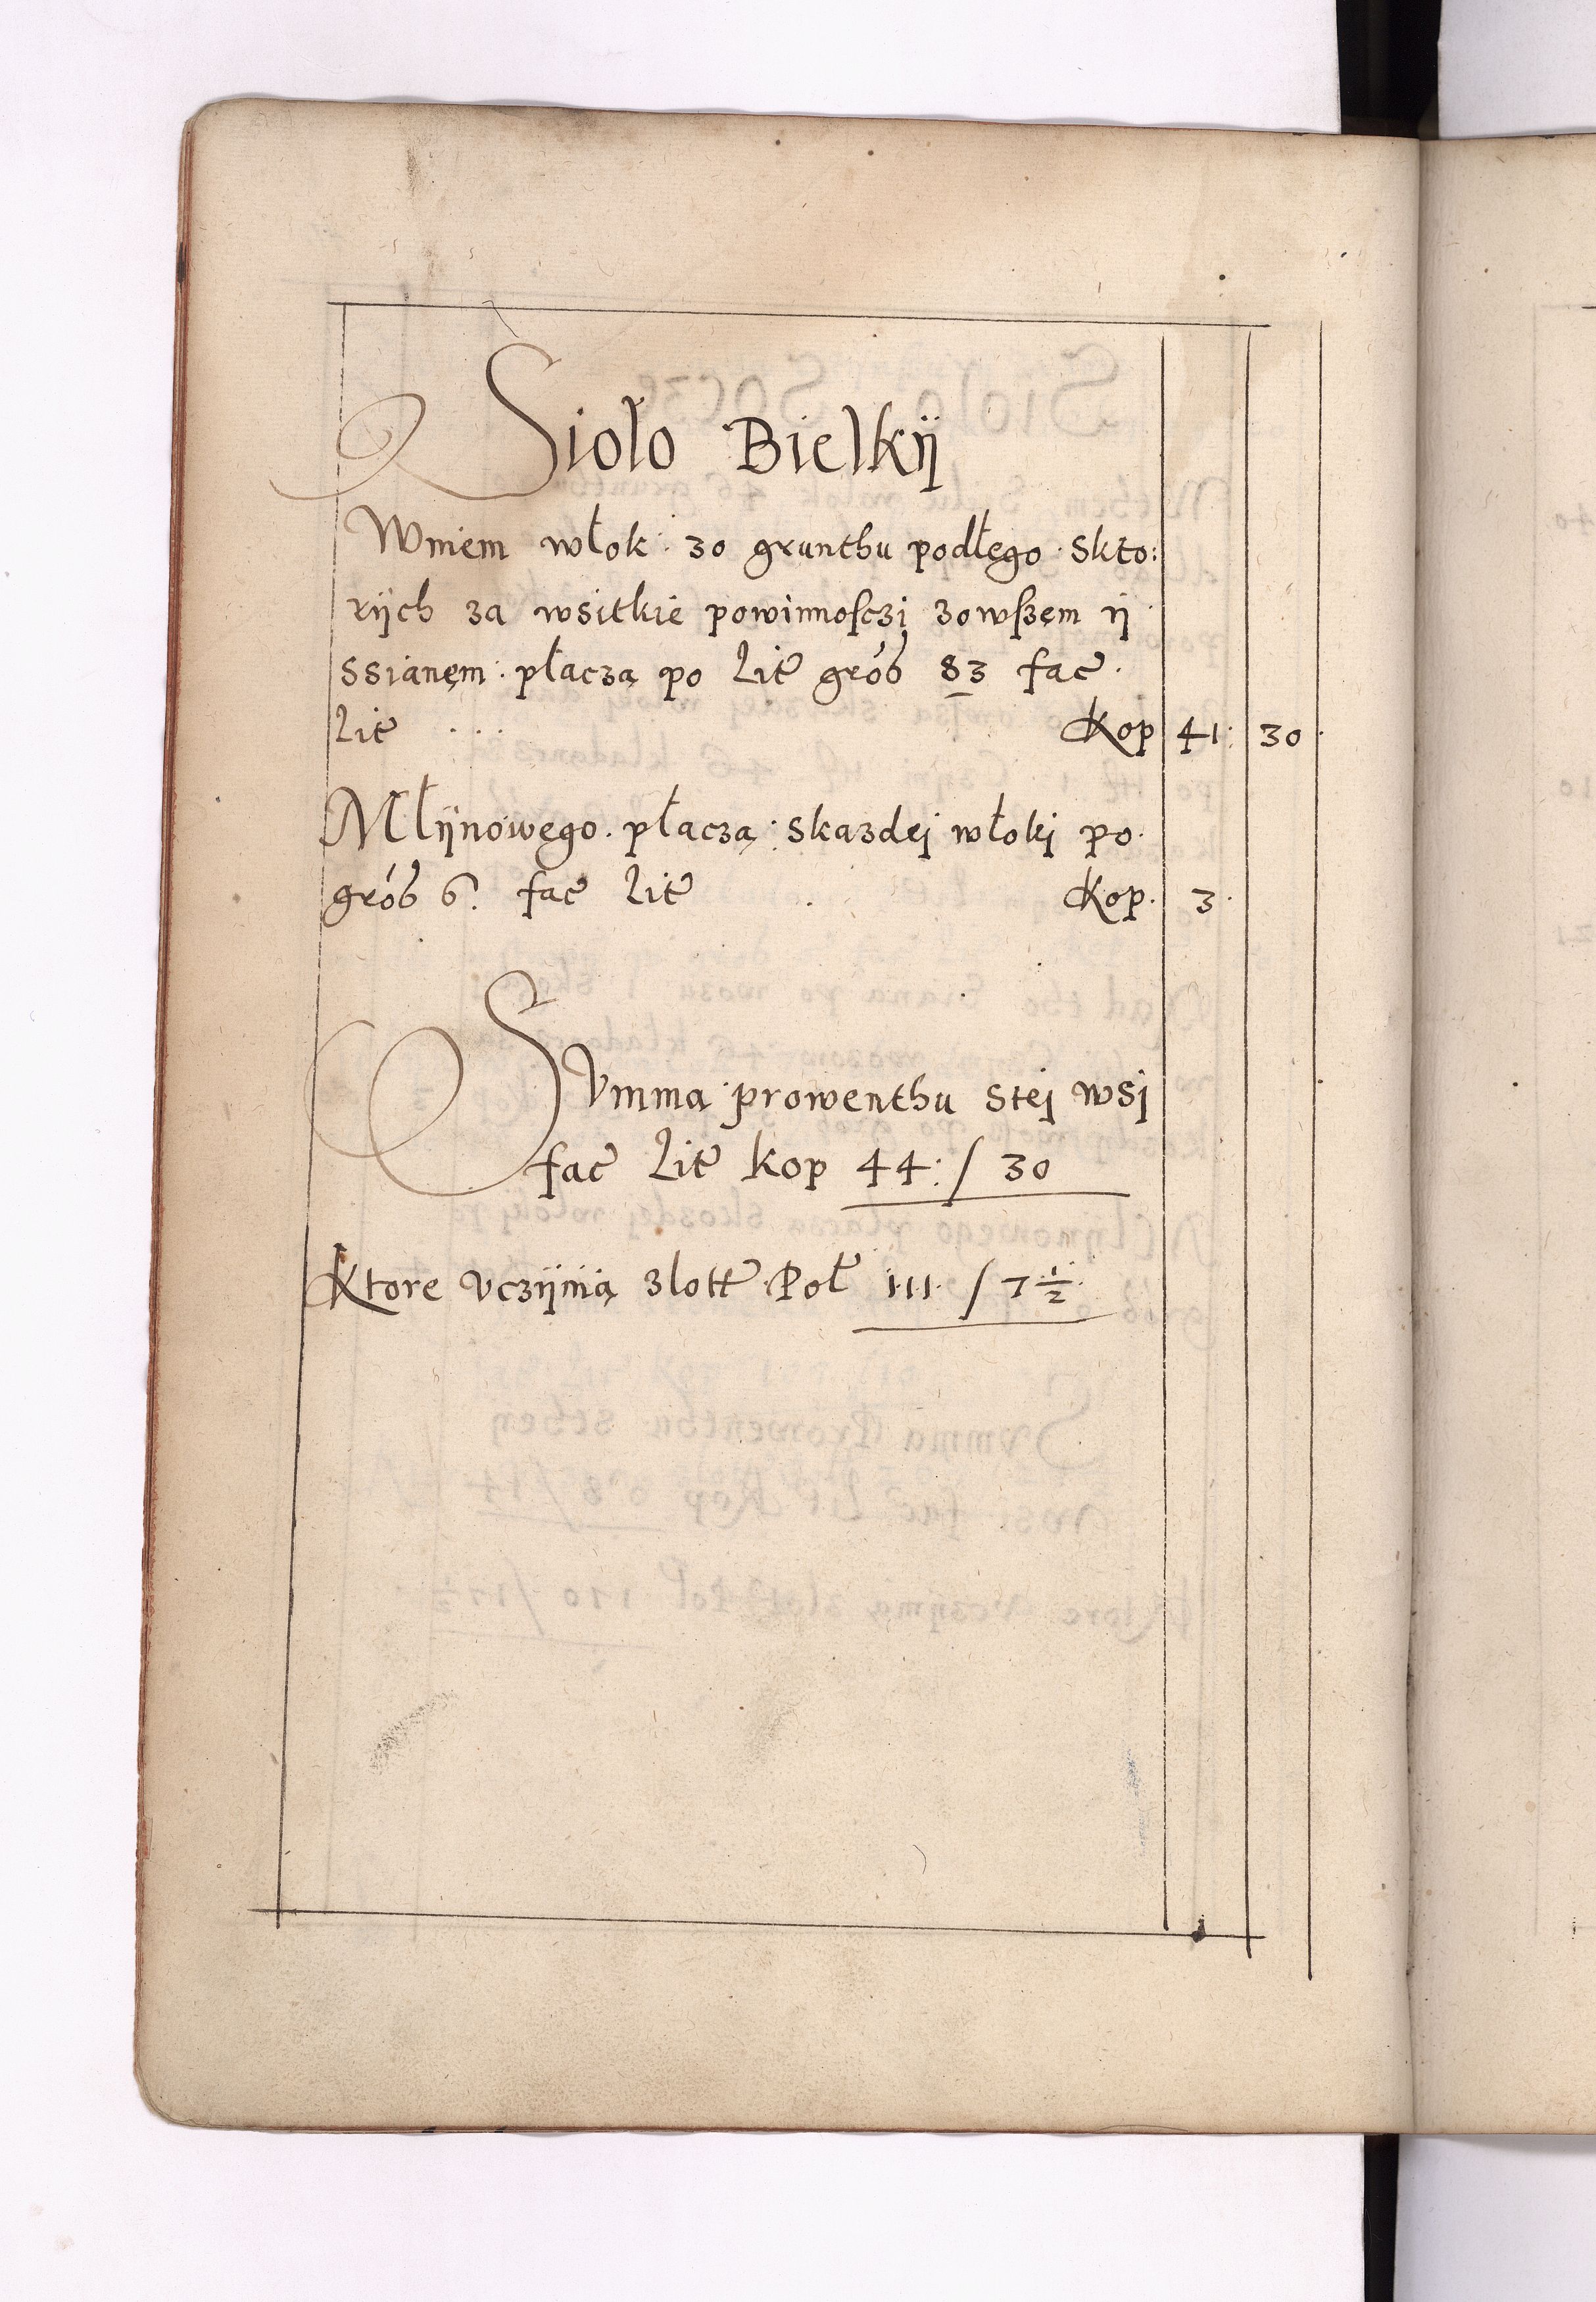 Sioło Bielkÿ
Wniem włok: 30 grunthu podłego skto:
rÿch za wsitkie powinnosczi zowszem ÿ
ssianęm: płaczą po Lit grob 83 fac
Lit Kop 41: 30
Młÿnowego. płaczą: skazdei włoki po
grob 6. fac Lit Kop. 3
Svmma prowenthu stei wsi
fac Lit kop 44: / 30
Ktore vczÿnią zlott Pol 111 / 7 1/2